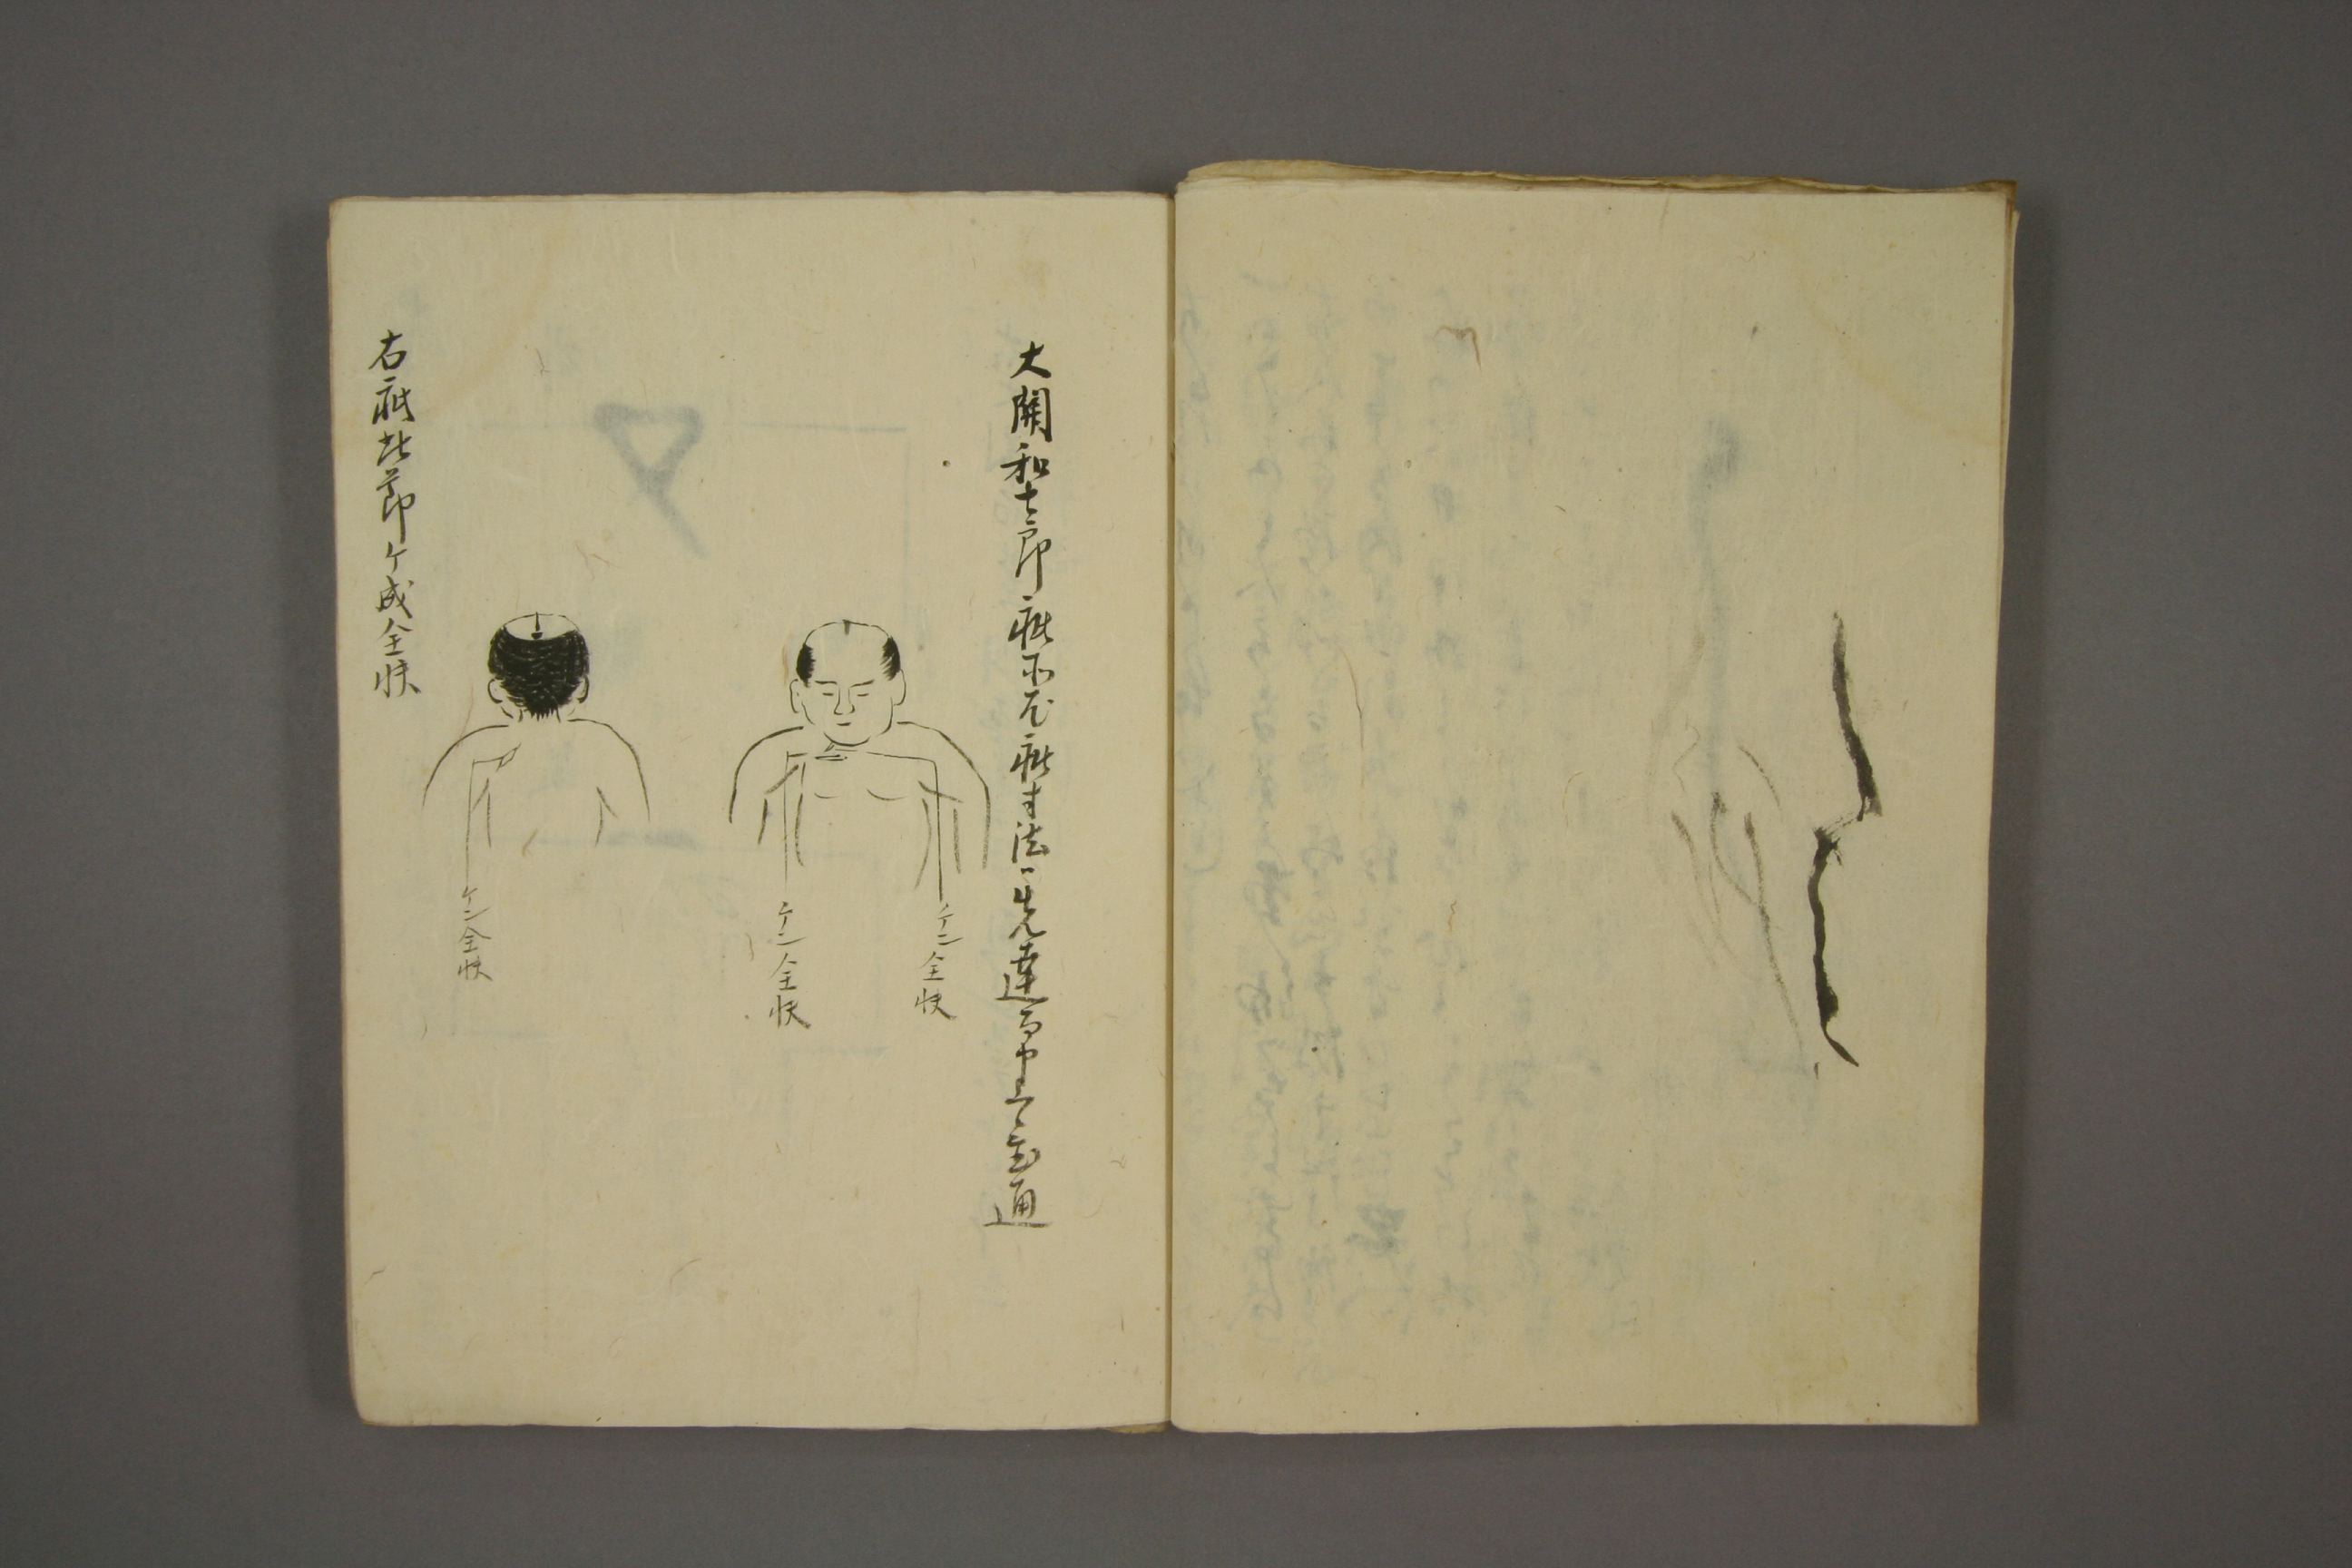 大関和七郎疵所尤疵寸法ハ先達而申上置通
ケン全快
ケン全快
ケン全快
右疵此節ケ成全快